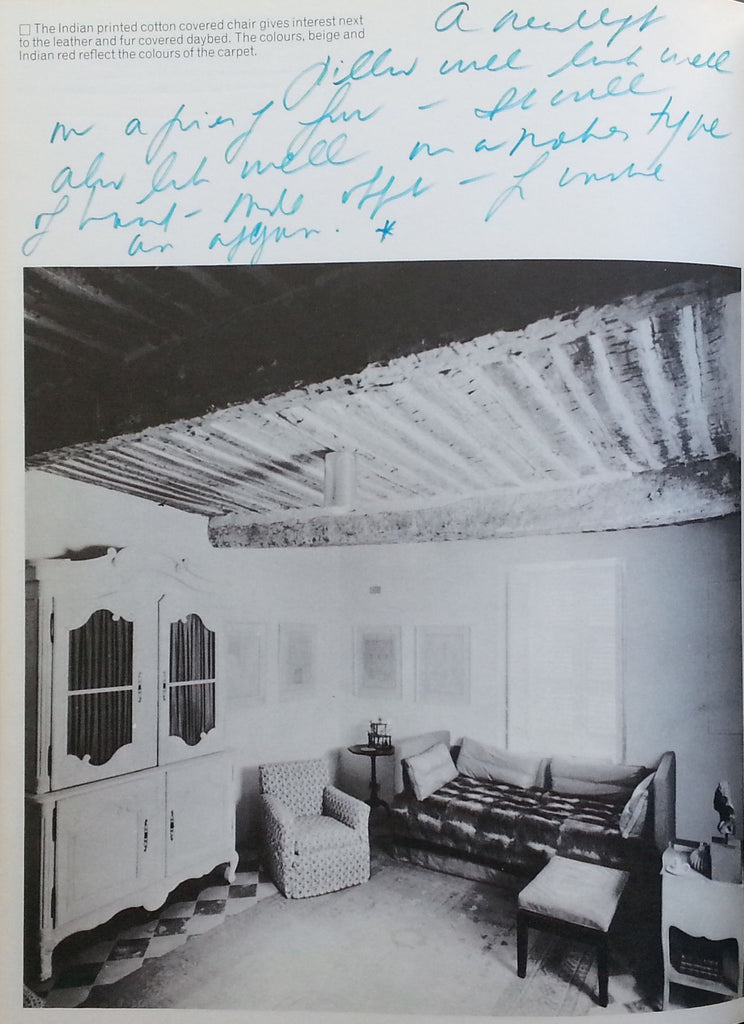 □ The Indian printed cotton covered chair gives interest next
to the leather and fur covered daybed. The colours, beige and
Indian red reflect the colours of the carpet.
A
pillow will look well
on a piece of fur — It will
also look well on a type
of —
an afgan. *